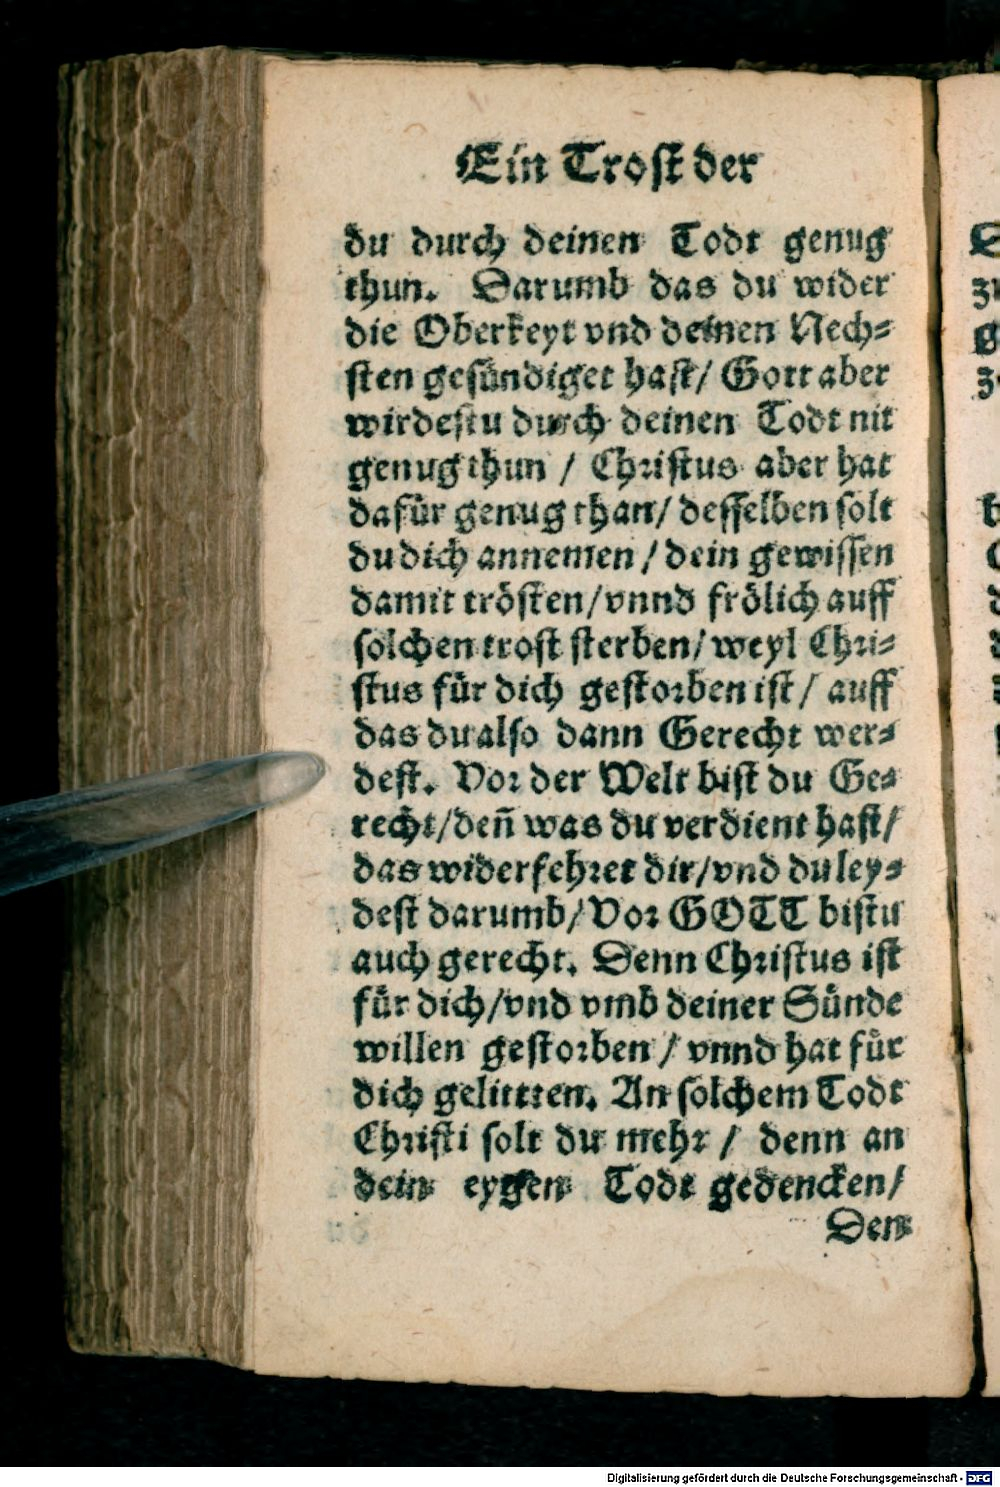 Ein Trost der
du durch deinen Todt genug
thun. Darumb das du wider
die Oberkeyt vnd deinen Nech-
sten gesündiget hast/ Gott aber
wirdestu durch deinen Todt nit
genugthun / Christus aber hat
dafür genug than/ desselben solt
du dich annemen / dein gewissen
damit trösten/vnnd frölich auff
solchen trost sterben/ weyl Chri-
stus für dich gestorben ist/ auff
das du also dann Gerecht wer-
dest. Vor der Welt bist du Ge-
recht/deñ was du verdient hast/
das widerfehret dir/vnd du ley-
dest darumb/Vor GOTT bistu
auch gerecht. Denn Christus ist
für dich/vnd vmb deiner Sünde
willen gestorben / vnnd hat für
dich gelittten. An solchem Todt
Christi solt du mehr / denn an
dein eygen Todt gedencken/
Den
Digitalisierung gefördert durch die Deutsche Forschungsgemeinschaft - DFG